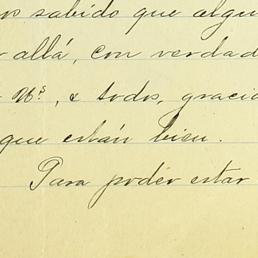 sabido que algu
allá, con verdad
Ms, e todos, gracia
que están bien.
Para poder estar